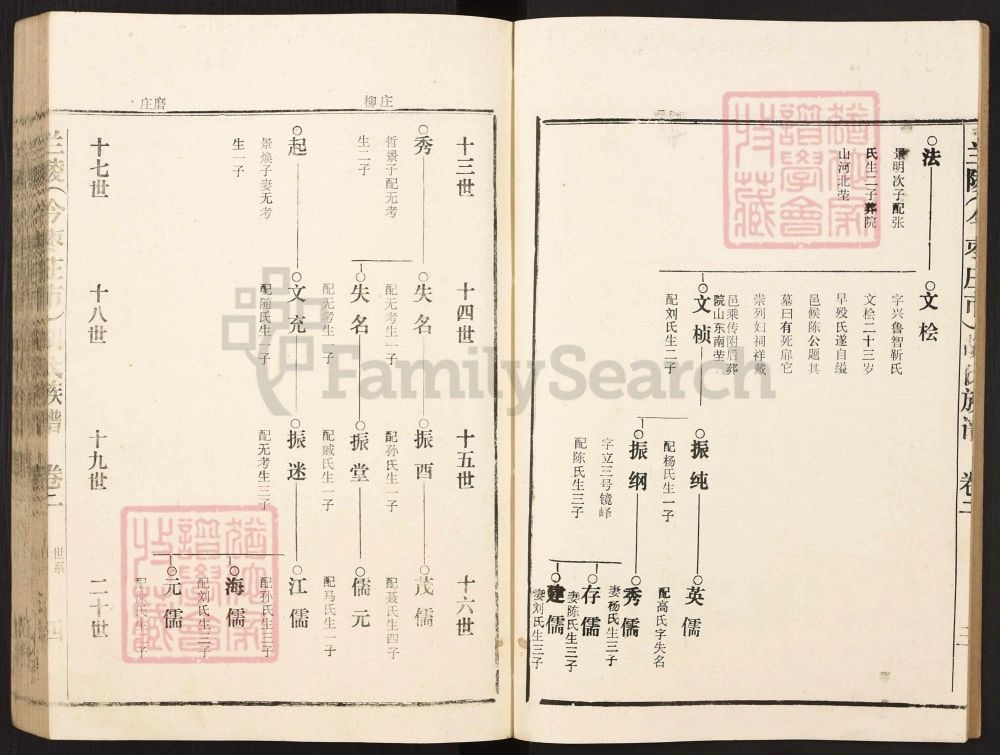 法
景明次子配张
氏生二子葬院
山河北茔
文桧
字兴鲁智靳氏
文桧二十三岁
早殁氏遂自缢
邑候陈公题其
墓曰有死靡它
崇列妇祠祥戴
邑乘传附后葬
院山东南茔
文桢
配刘氏生二子
振纯
配杨氏生一子
振纲
字立三号镜峰
配陈氏生三子
英儒
配高氏字失名
秀儒
妻杨氏生三子
存儒
妻陈氏生三子
建儒
妻刘氏生三子
卷二
三
柳庄
磨庄
十三世
十四世
十五世
十六世
秀
哲景子配无考
生二子
失名
配无考生一子
振酉
配孙氏生一子
茂儒
配聂氏生四子
失名
配无考生一子
振堂
配戚氏生一子
儒元
配马氏生一子
起
景焕子妻无考
生一子
文充
配随氏生一子
振迷
配无考生三子
江儒
配孙氏生三子
海儒
配刘氏生三子
元儒
十七世
十八世
十九世
二十世
兰陵(今枣庄市)
族谱
卷二
世系
四
FamilySearch